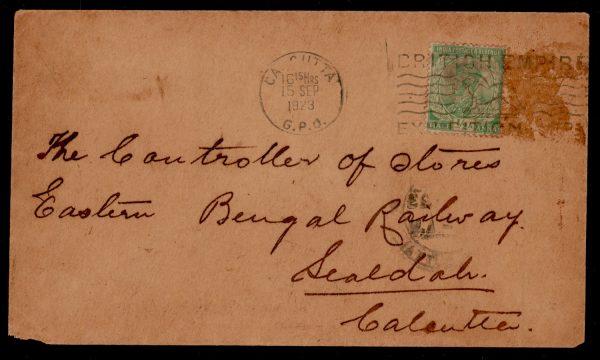 CALCUTTA
16 15 HRS
15 SEP
1923
G.P.O.
BRITISH EMPIRE
INDIA POSTAGE & REVENUE
The Controller of Stores
Eastern Bengal Railway.
Sealdah.
Calcutta.